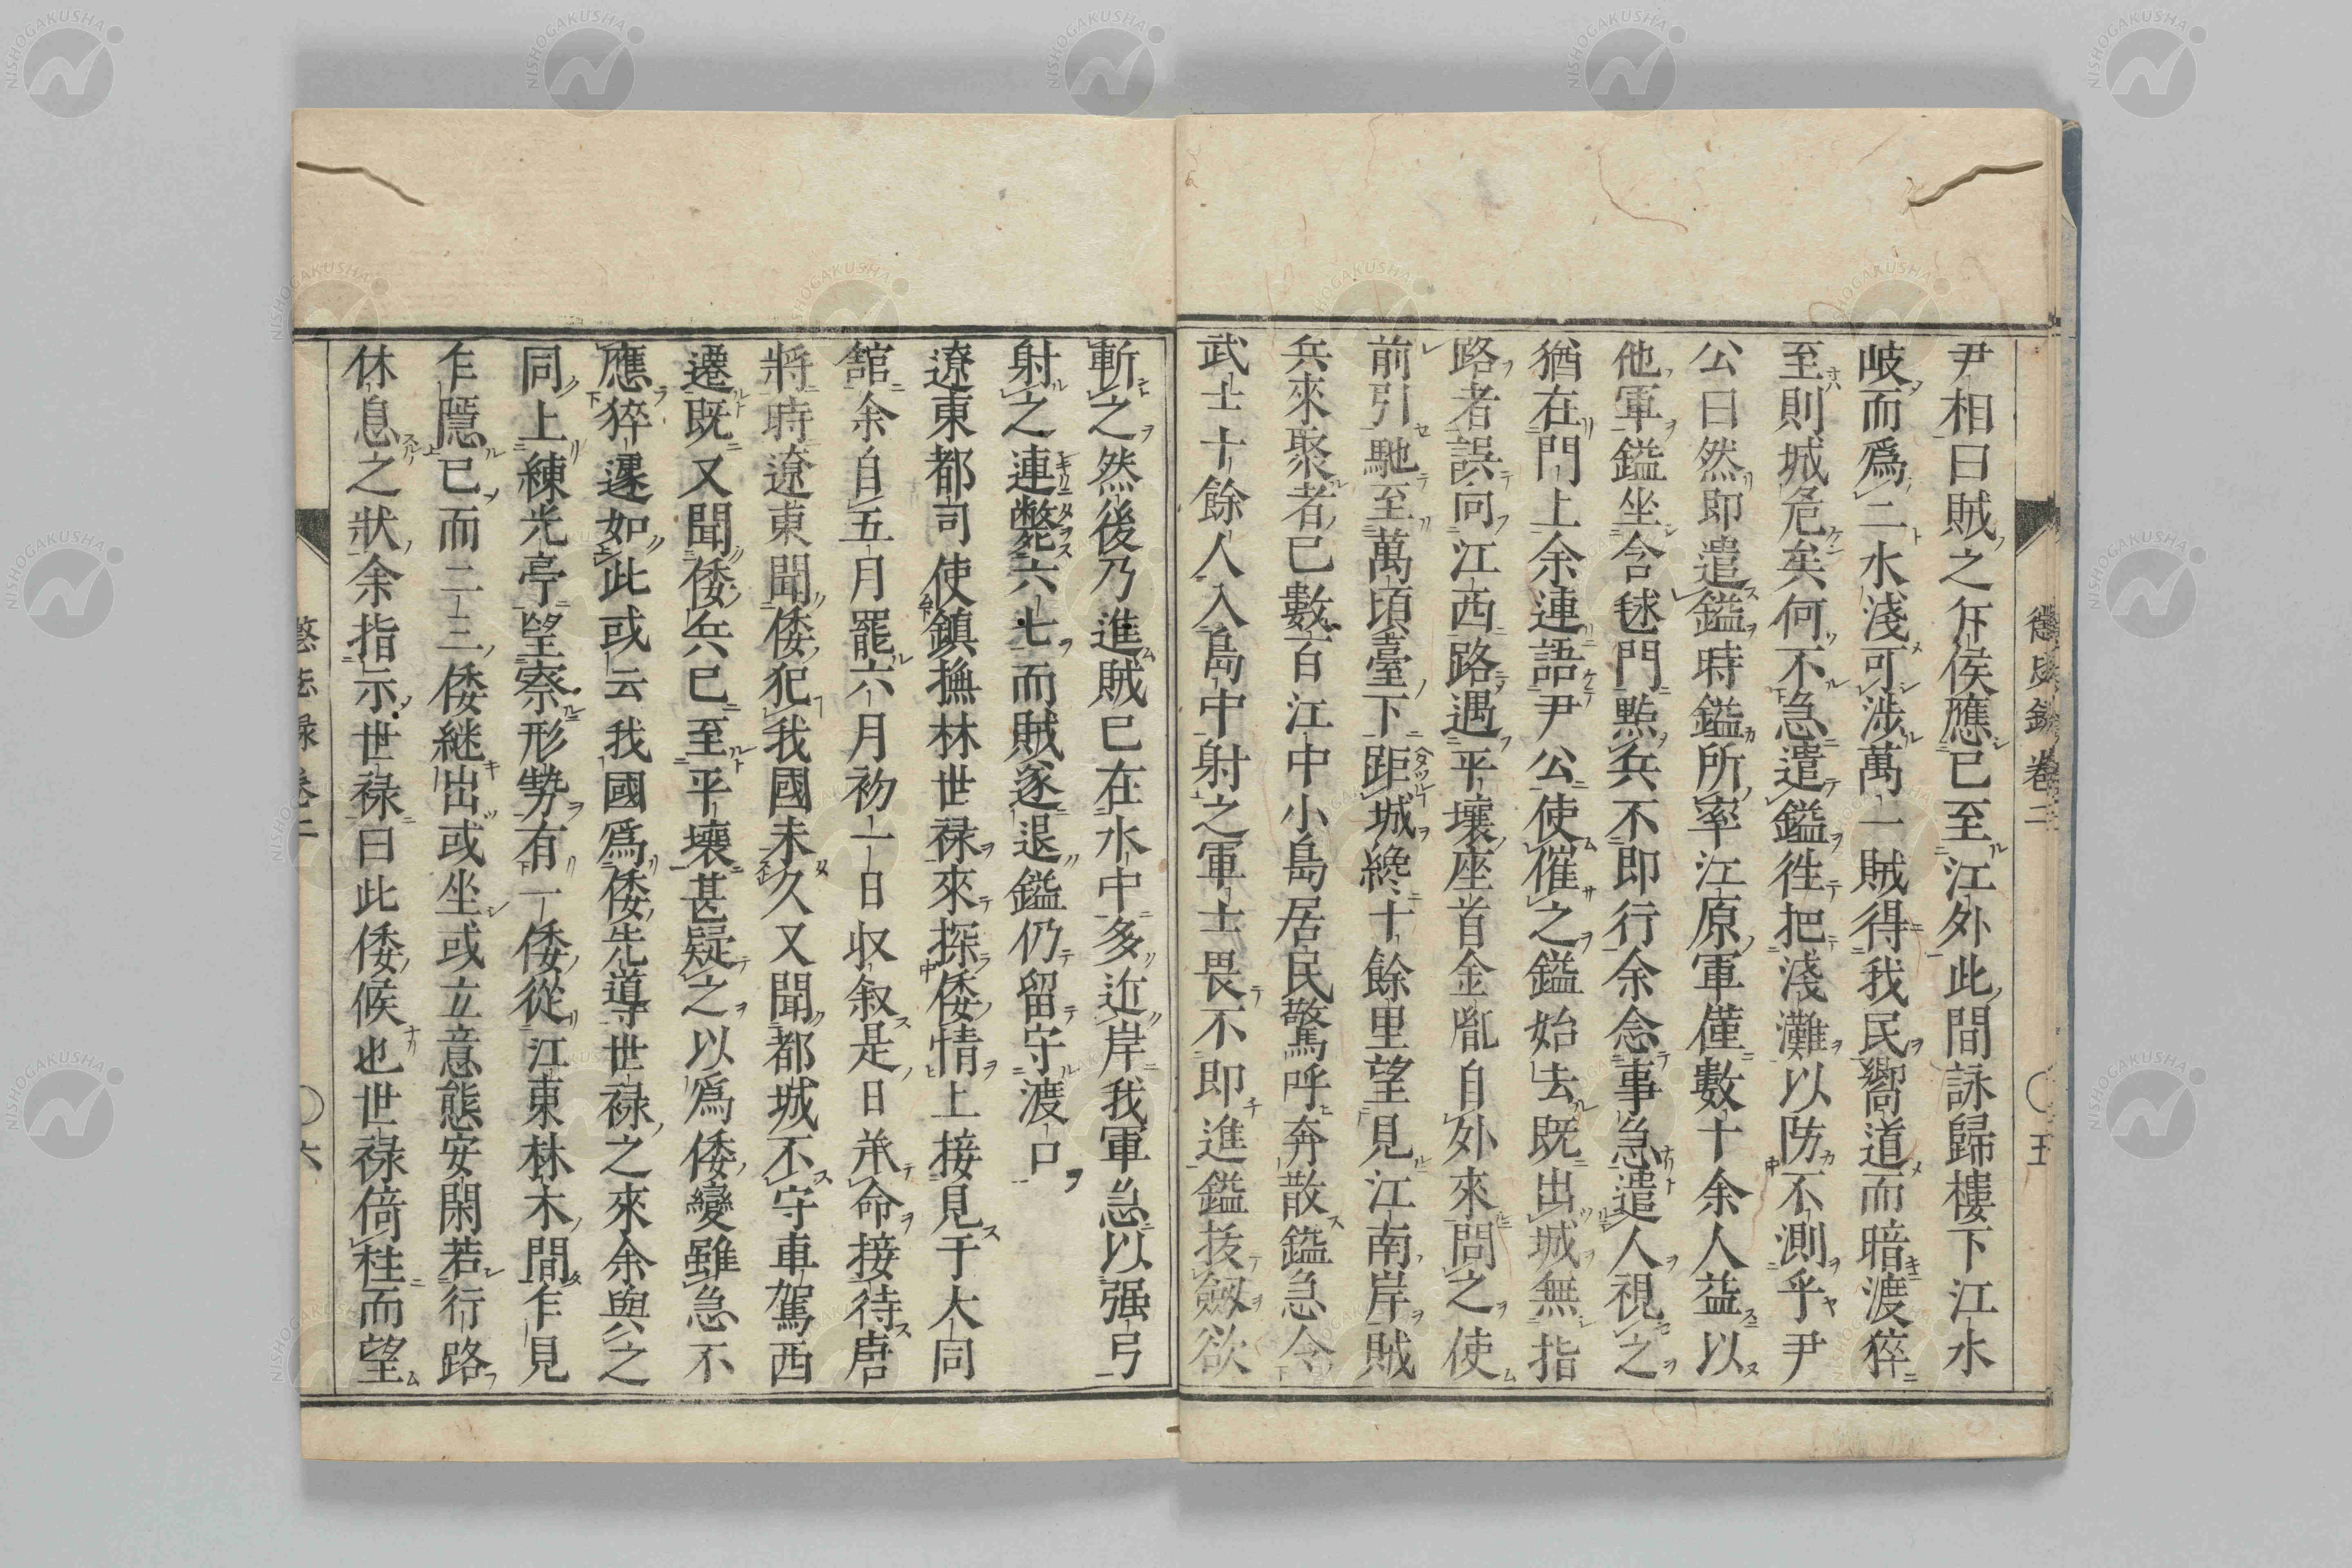 尹相曰賊之斥侯應已至江外此間詠歸樓下江水
岐而爲二水淺可涉萬一賊得我民嚮道而暗渡猝
至則城危矣何不急遣鎰徃把淺灘以防不測乎尹
公曰然即遣鎰時鎰所率江原軍僅數十余人益以
他軍鎰坐含毬門㸃兵不即行余念事急遣人視之
猶在門上余連語尹公使催之鎰始去既出城無指
路者誤向江西路遇平壤座首金胤自外來問之使
前引馳至萬頃臺下距城纔十餘里望見江南岸賊
兵來聚者已數百江中小島居民驚呼奔散鎰急令
武士十餘人入島中射之軍士畏不即進鎰拔劔欲
斬之然後乃進賊已在水中多近岸我軍急以强弓
射之連斃六七而賊遂退鎰仍留守渡口
遼東都司使鎮撫林世禄來探倭情上接見于大同
舘余自五月罷六月初一日収叙是日承命接待唐
將時遼東聞倭犯我國未久又聞都城不守車駕西
遷既又聞倭兵已至平壤甚疑之以爲倭變雖急不
應猝遽如此或云我國爲倭先導世禄之來余與之
同上練光亭望察形勢有一倭從江東林木間乍見
乍隱已而二三倭継出或坐或立意態安閑若行路
休息之狀余指示世禄曰此倭候也世禄倚柱而望
懲毖録 卷二
五
六
NISHOGAKUSHA